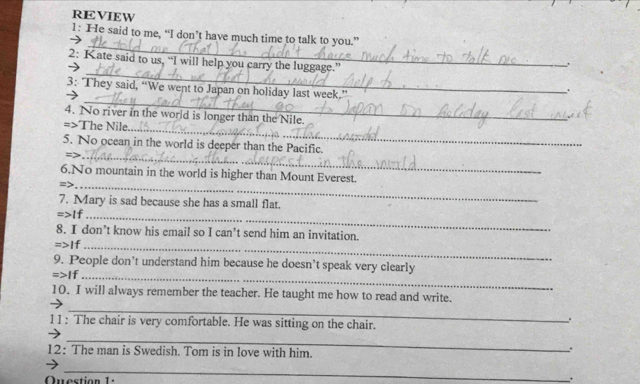 REVIEW
1: He said to me, “I don’t have much time to talk to you.”
→ He told me (that) he didn't have much time to talk me
2: Kate said to us, “I will help you carry the luggage.”
→ Kate said to us (that) he would help to ....
3: They said, “We went to Japan on holiday last week.”
→ They said that they go to Japan on holiday last week
4. No river in the world is longer than the Nile.
=>The Nile is the longest in the world
5. No ocean in the world is deeper than the Pacific.
=>The Pacific is the deepest in the world
6.No mountain in the world is higher than Mount Everest.
=>
7. Mary is sad because she has a small flat.
=>If
8. I don’t know his email so I can’t send him an invitation.
=>If
9. People don’t understand him because he doesn’t speak very clearly
=>If
10. I will always remember the teacher. He taught me how to read and write.
→
11: The chair is very comfortable. He was sitting on the chair.
→
12: The man is Swedish. Tom is in love with him.
→
Question 1: